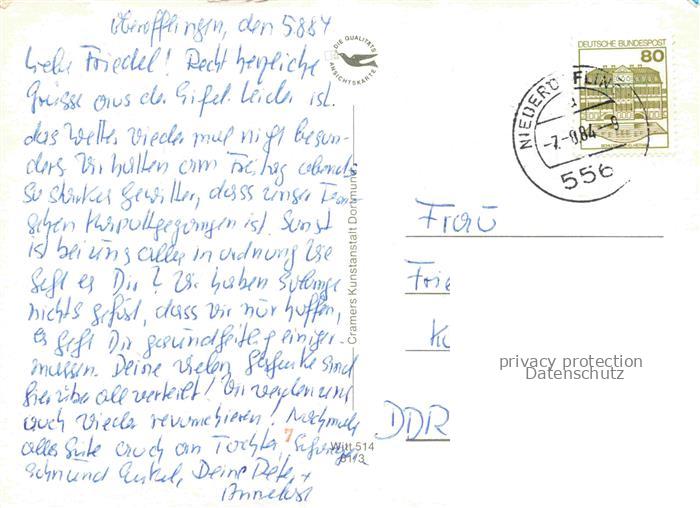 Oberöfflingen, den 5884
Liebe Friedel! Recht herzliche
Grüsse aus der Eifel. Leider ist
das Wetter wieder mal nicht beson-
ders. Wir hatten am Freitag abend
so starkes Gewitter, dass unser Fern-
sehen kaputtgegangen ist. Sonst
ist bei uns alles in ordnung. Wie
geht es Dir? Wir haben solange
nichts gehört, dass wir nur hoffen,
es geht Dir gesundheitlich einiger-
massen. Deine vielen Geschenke sind
hier überall verteilt! Wir werden uns
auch wieder revanchieren! Nochmals
alles Gute auch an Tochter, Schwieger-
sohn und Enkel, Deine Peter +
Anneliese
DIE QUALITÄTS
ANSICHTSKARTE
Cramers Kunstanstalt Dortmund
7
Witt 514
DEUTSCHE BUNDESPOST
80
NIEDERÖFFLING
-7.-8.84-8
556
Frau
Frie
DDR
privacy protection
Datenschutz